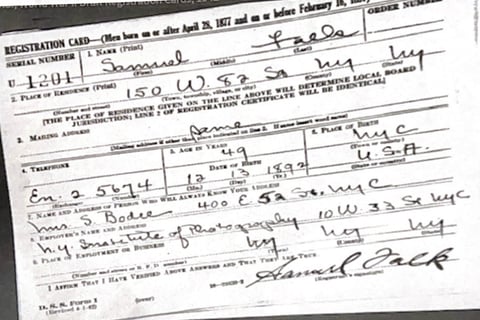 REGISTRATION CARD—(Men born on or after April 28, 1877 and on or before February 16,
SERIAL NUMBER 1. NAME (Print) ORDER NUMBER
U 1201 Samuel Falk
(First) (Middle) (Last)
2. PLACE OF RESIDENCE (Print)
150 W. 82 St NY NY
(Number and street) (Town, township, village, or city) (County) (State)
[THE PLACE OF RESIDENCE GIVEN ON THE LINE ABOVE WILL DETERMINE LOCAL BOARD
JURISDICTION; LINE 2 OF REGISTRATION CERTIFICATE WILL BE IDENTICAL]
3. MAILING ADDRESS
Same
(Mailing address if other than place indicated on line 2. If same insert word same)
4. TELEPHONE 5. AGE IN YEARS 6. PLACE OF BIRTH
49 NYC
DATE OF BIRTH (Town or county)
En. 2 5674 12 13 1892 U.S.A.
(Exchange) (Number) (Mo.) (Day) (Yr.) (State or country)
7. NAME AND ADDRESS OF PERSON WHO WILL ALWAYS KNOW YOUR ADDRESS
Mrs. S. Bodie 400 E 52 St. NYC
8. EMPLOYER'S NAME AND ADDRESS
N.Y. Institute of Photography 10 W. 33 St NYC
9. PLACE OF EMPLOYMENT OR BUSINESS
NY NY NY
(Number and street or R. F. D. number) (Town) (County) (State)
I AFFIRM THAT I HAVE VERIFIED ABOVE ANSWERS AND THAT THEY ARE TRUE.
Samuel Falk
D. S. S. Form 1 (over) (Registrant's signature)
(Revised 4-1-42)